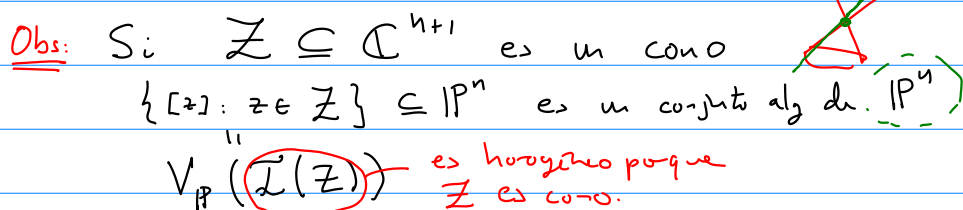 Obs: Si Z ⊆ ℂ^{n+1} es un cono
{[z] : z ∈ Z} ⊆ ℙ^n es un conjuto alg de ℙ^n
"
V_ℙ(I(Z)) es homogéneo porque
Z es cono.